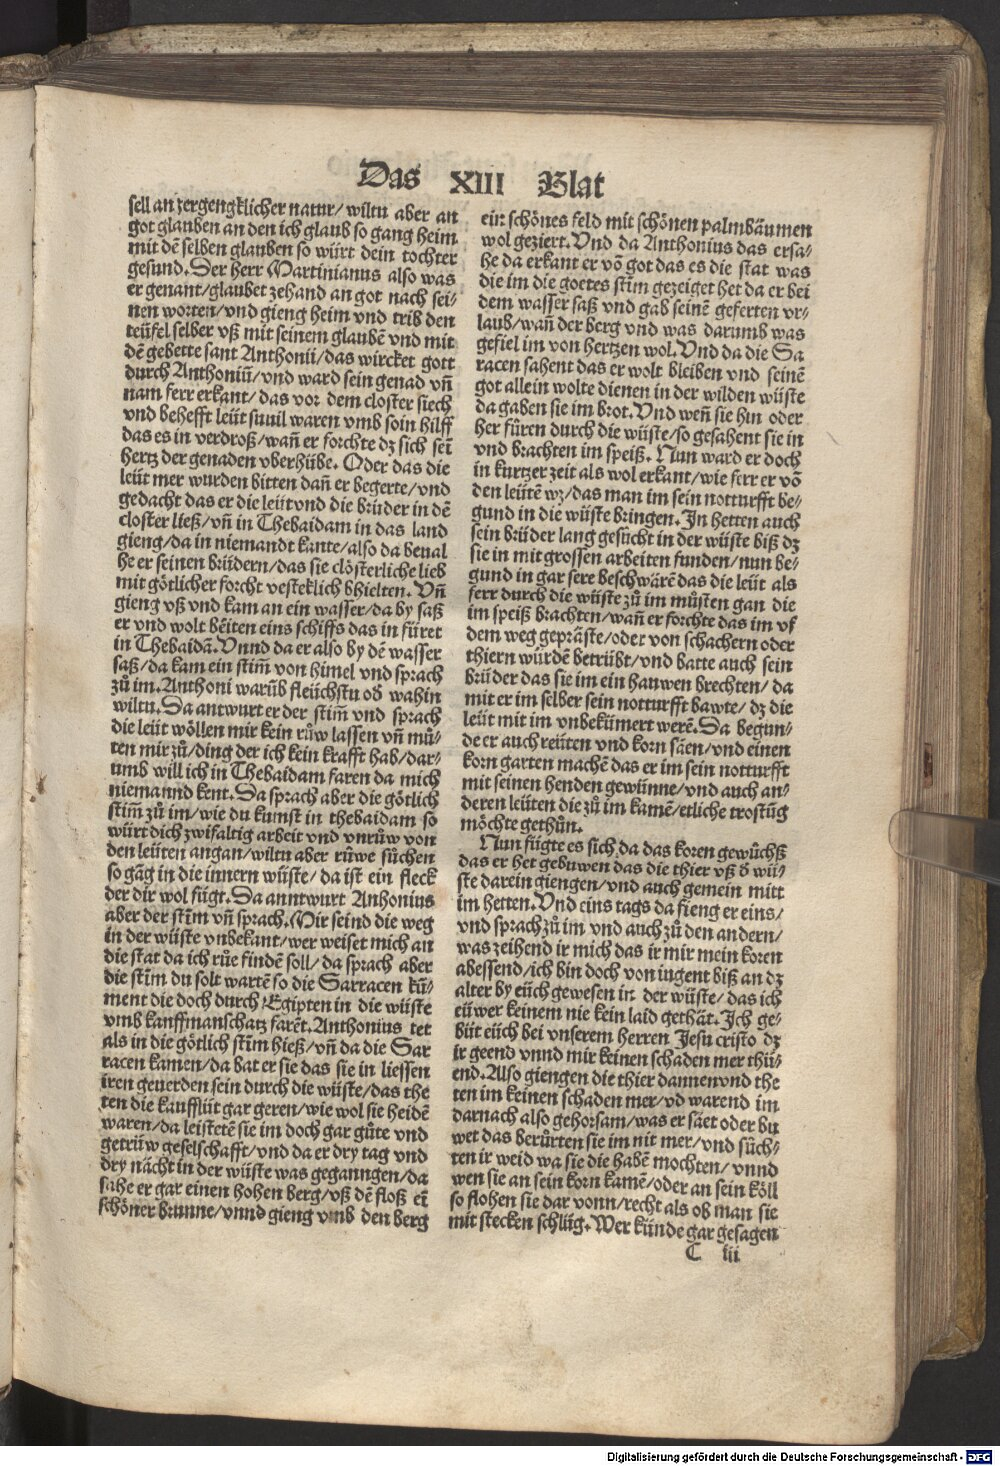 Das XIII Blat
sell an zergengklicher natur/ wiltu aber an
got glauben an den ich glaub so gang heim
mit dē selben glauben so würt dein tochter
gesund. Der herr Martinianus also was
er genant/glaubet zehand an got nach sei⸗
nen worten/vnd gieng heim vnd trib den
teüfel selber vß mit seinem glaubē vnd mit
dē gebette sant Anthonii/das wircket gott
durch Anthoniū/vnd ward sein genad vn̄
nam ferr erkant/ das vor dem closter siech
vnd behefft leüt suuil waren vmb soin hilff
das es in verdroß/wan̄ er forchte dz sich sei
hertz der genaden vberhübe. Oder das die
leüt mer wurden bitten dan̄ er begerte/vnd
gedacht das er die leüt vnd die brüder in dē
closter ließ/vn̄ in Thebaidam in das land
gieng/da in niemandt kante/also da beual
he er seinen brüdern/das sie clösterliche lieb
mit götlicher forcht vesteklich bhielten. Vn̄
gieng vß vnd kam an ein wasser/da by saß
er vnd wolt beiten eins schiffs das in füret
in Thebaidā. Vnnd da er also by dē wasser
saß/da kam ein stim̄ von himel vnd sprach
zů im. Anthoni warūb fleüchstu od̄ wahin
wiltu. Da antwurt er der stim̄ vnd sprach
die leüt wöllen mir kein růw lassen vn̄ mů⸗
ten mir zů/ding der ich kein krafft hab/dar⸗
umb will ich in Thebaidam faren da mich
niemannd kent. Da sprach aber die götlich
stim̄ zů im/wie du kumst in thebaidam so
würt dich zwifaltig arbeit vnd vnrůw von
den leüten angan/wiltu aber růwe sůchen
so gāg in die innern wüste/ da ist ein fleck
der dir wol fügt. Da anntwurt Anhonius
aber der stīm vn̄ sprach. Mir seind die weg
in der wüste vnbekant/wer weiset mich an
die stat da ich růe findē soll/da sprach aber
die stīm du solt wartē so die Sarracen kū⸗
ment die doch durch Egipten in die wüste
vmb kauffmanschatz farēt. Anthonius tet
als in die götlich stīm hieß/vn̄ da die Sar
racen kamen/da bat er sie das sie in liessen
iren geuerden sein durch die wüste/das the
ten die kaufflüt gar geren/wie wol sie heidē
waren/da leistetē sie im doch gar gůte vnd
getrüw geselschafft/vnd da er dry tag vnd
dry nächt in der wüste was geganngen/da
sahe er gar einen hohen berg/vß dē floß ei
schöner brunne/vnnd gieng vmb den berg
ein schönes feld mit schönen palmbäumen
wol geziert. Vnd da Anthonius das ersa⸗
he da erkant er vō got das es die stat was
die im die goetes stīm gezeiget het da er bei
dem wasser saß vnd gab seinē geferten vr⸗
laub/wan̄ der berg vnd was darumb was
gefiel im von hertzen wol. Vnd da die Sa
racen sahent das er wolt bleiben vnd seinē
got allein wolte dienen in der wilden wüste
da gaben sie im brot. Vnd wen̄ sie hin oder
her fůren durch die wüste/so gesahent sie in
vnd brachten im speiß. Nun ward er doch
in kurtzer zeit als wol erkant/wie ferr er vō
den leütē wz/das man im sein notturfft be⸗
gund in die wüste bringen. In hetten auch
sein brüder lang gesůcht in der wüste biß dz
sie in mit grossen arbeiten funden/nun be⸗
gund in gar sere beschwärē das die leüt als
ferr durch die wüste zů im můsten gan die
im speiß brachten/wan̄ er forchte das im vf
dem weg gepräste/oder von schachern oder
thiern würdē betrübt/vnd batte auch sein
brüder das sie im ein hauwen brechten/ da
mit er im selber sein notturfft bawte/ dz die
leüt mit im vnbekümert werē. Da begun⸗
de er auch reüten vnd korn säen/vnd einen
korn garten machē das er im sein notturfft
mit seinen henden gewünne/vnd auch an⸗
deren leüten die zů im kamē/etliche trostūg
möchte gethůn.
Nun fügte es sich da das koren gewůchß
das er het gebuwen das die thier vß d̄ wü⸗
ste darein giengen/vnd auch gemein mitt
im hetten. Vnd eins tags da fieng er eins/
vnd sprach zů im vnd auch zů den andern/
was zeihend ir mich das ir mir mein koren
abessend/ich bin doch von iugent biß an dz
alter by eüch gewesen in der wüste/das ich
eüwer keinem nie kein laid gethät. Ich ge⸗
büt eüch bei vnserem herren Jesu cristo dz
ir geend vnnd mir keinen schaden mer thü⸗
end. Also giengen die thier dannen vnd the
ten im keinen schaden mer/vd warend im
darnach also gehorsam/was er säet oder bu
wet das berůrten sie im nit mer/vnd sůch⸗
ten ir weid wa sie die habē mochten/vnnd
wen sie an sein korn kamē/oder an sein köll
so flohen sie dar vonn/recht als ob man sie
mit stecken schlüg. Wer künde gar gesagen
C iii
Digitalisierung gefördert durch die Deutsche Forschungsgemeinschaft - DFG